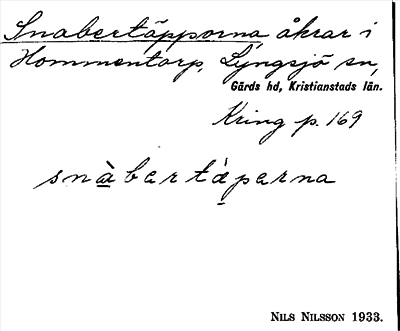 Snabertäpporna åkrar i
Hommentorp, Lyngsjö sn,
Gärds hd, Kristianstads län.
Kring p. 169
snàbertæ̀perna
NILS NILSSON 1933.